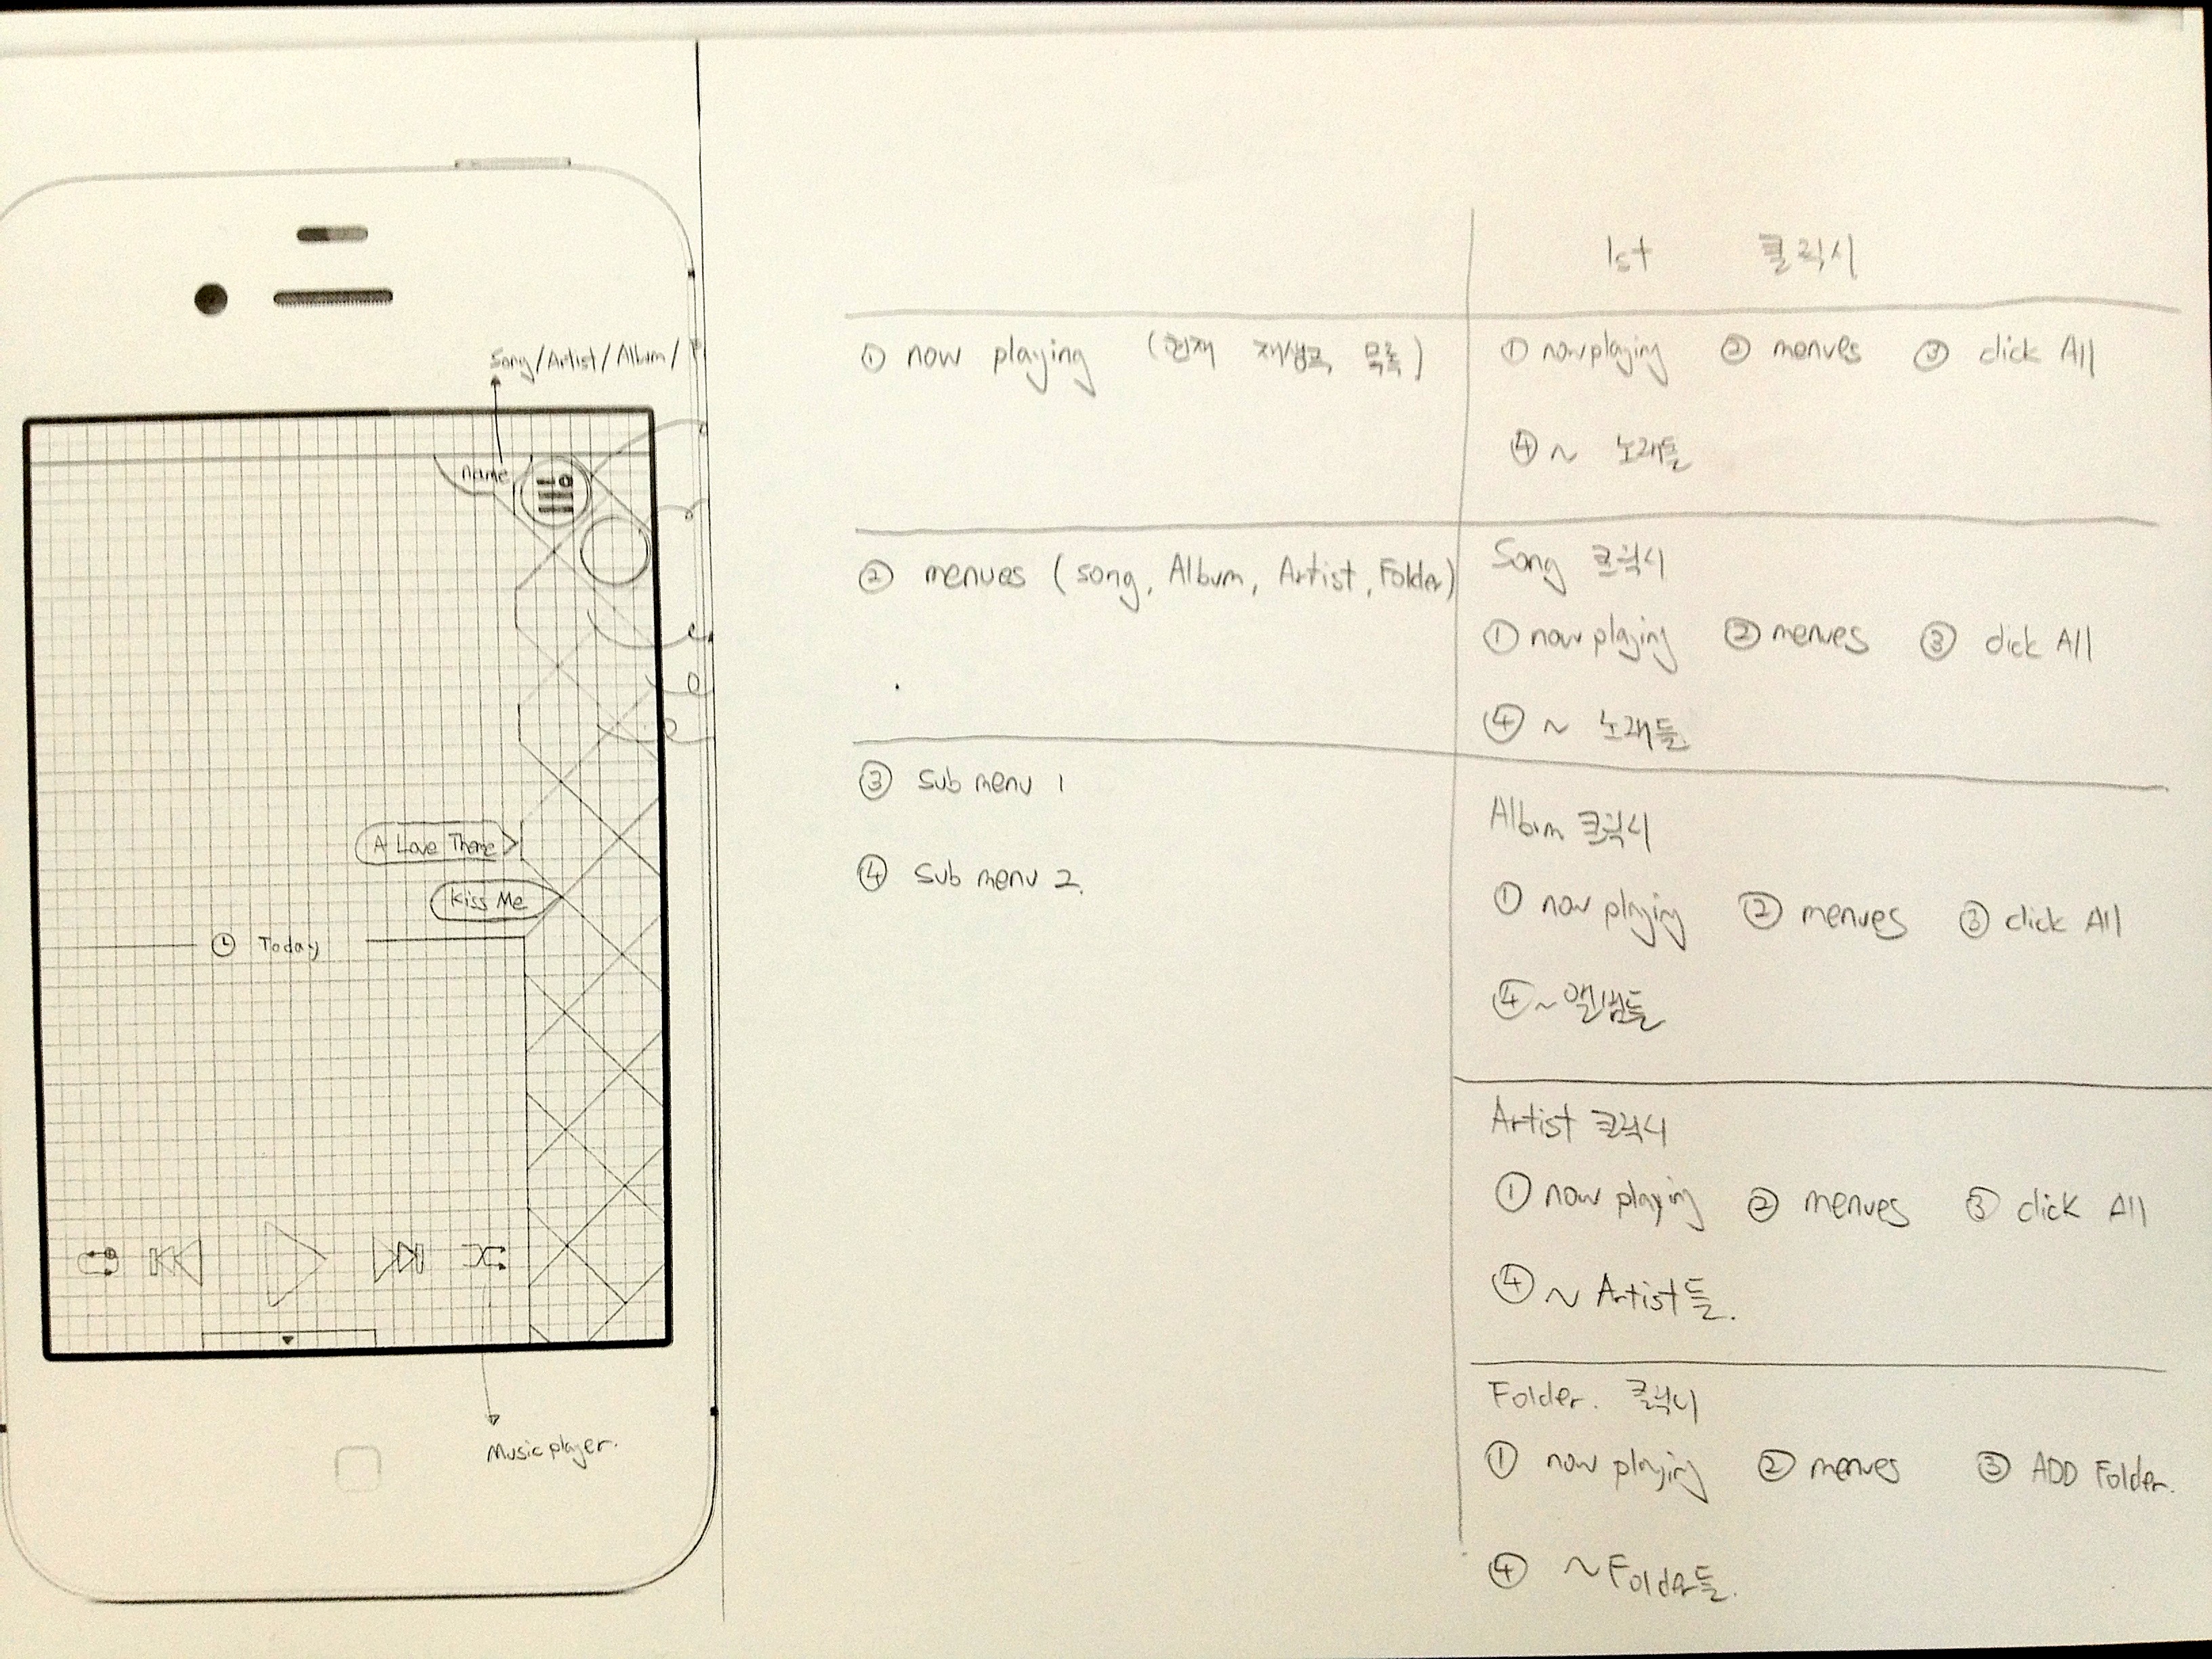 Song/Artist/Album/
name
A Love Theme
Kiss Me
Today
Music player.
1st 클릭시
① now playing (현재 재생 목록)
① now playing ② menues ③ click All
④ ~ 노래들
② menues (song, Album, Artist, Folder)
Song 클릭시
① now playing ② menues ③ click All
④ ~ 노래들.
③ sub menu 1
④ sub menu 2.
Album 클릭시
① now playing ② menues ③ click All
④ ~ 앨범들
Artist 클릭시
① now playing ② menues ③ click All
④ ~ Artist들.
Folder. 클릭시
① now playing ② menues ③ ADD Folder.
④ ~ Folder들.